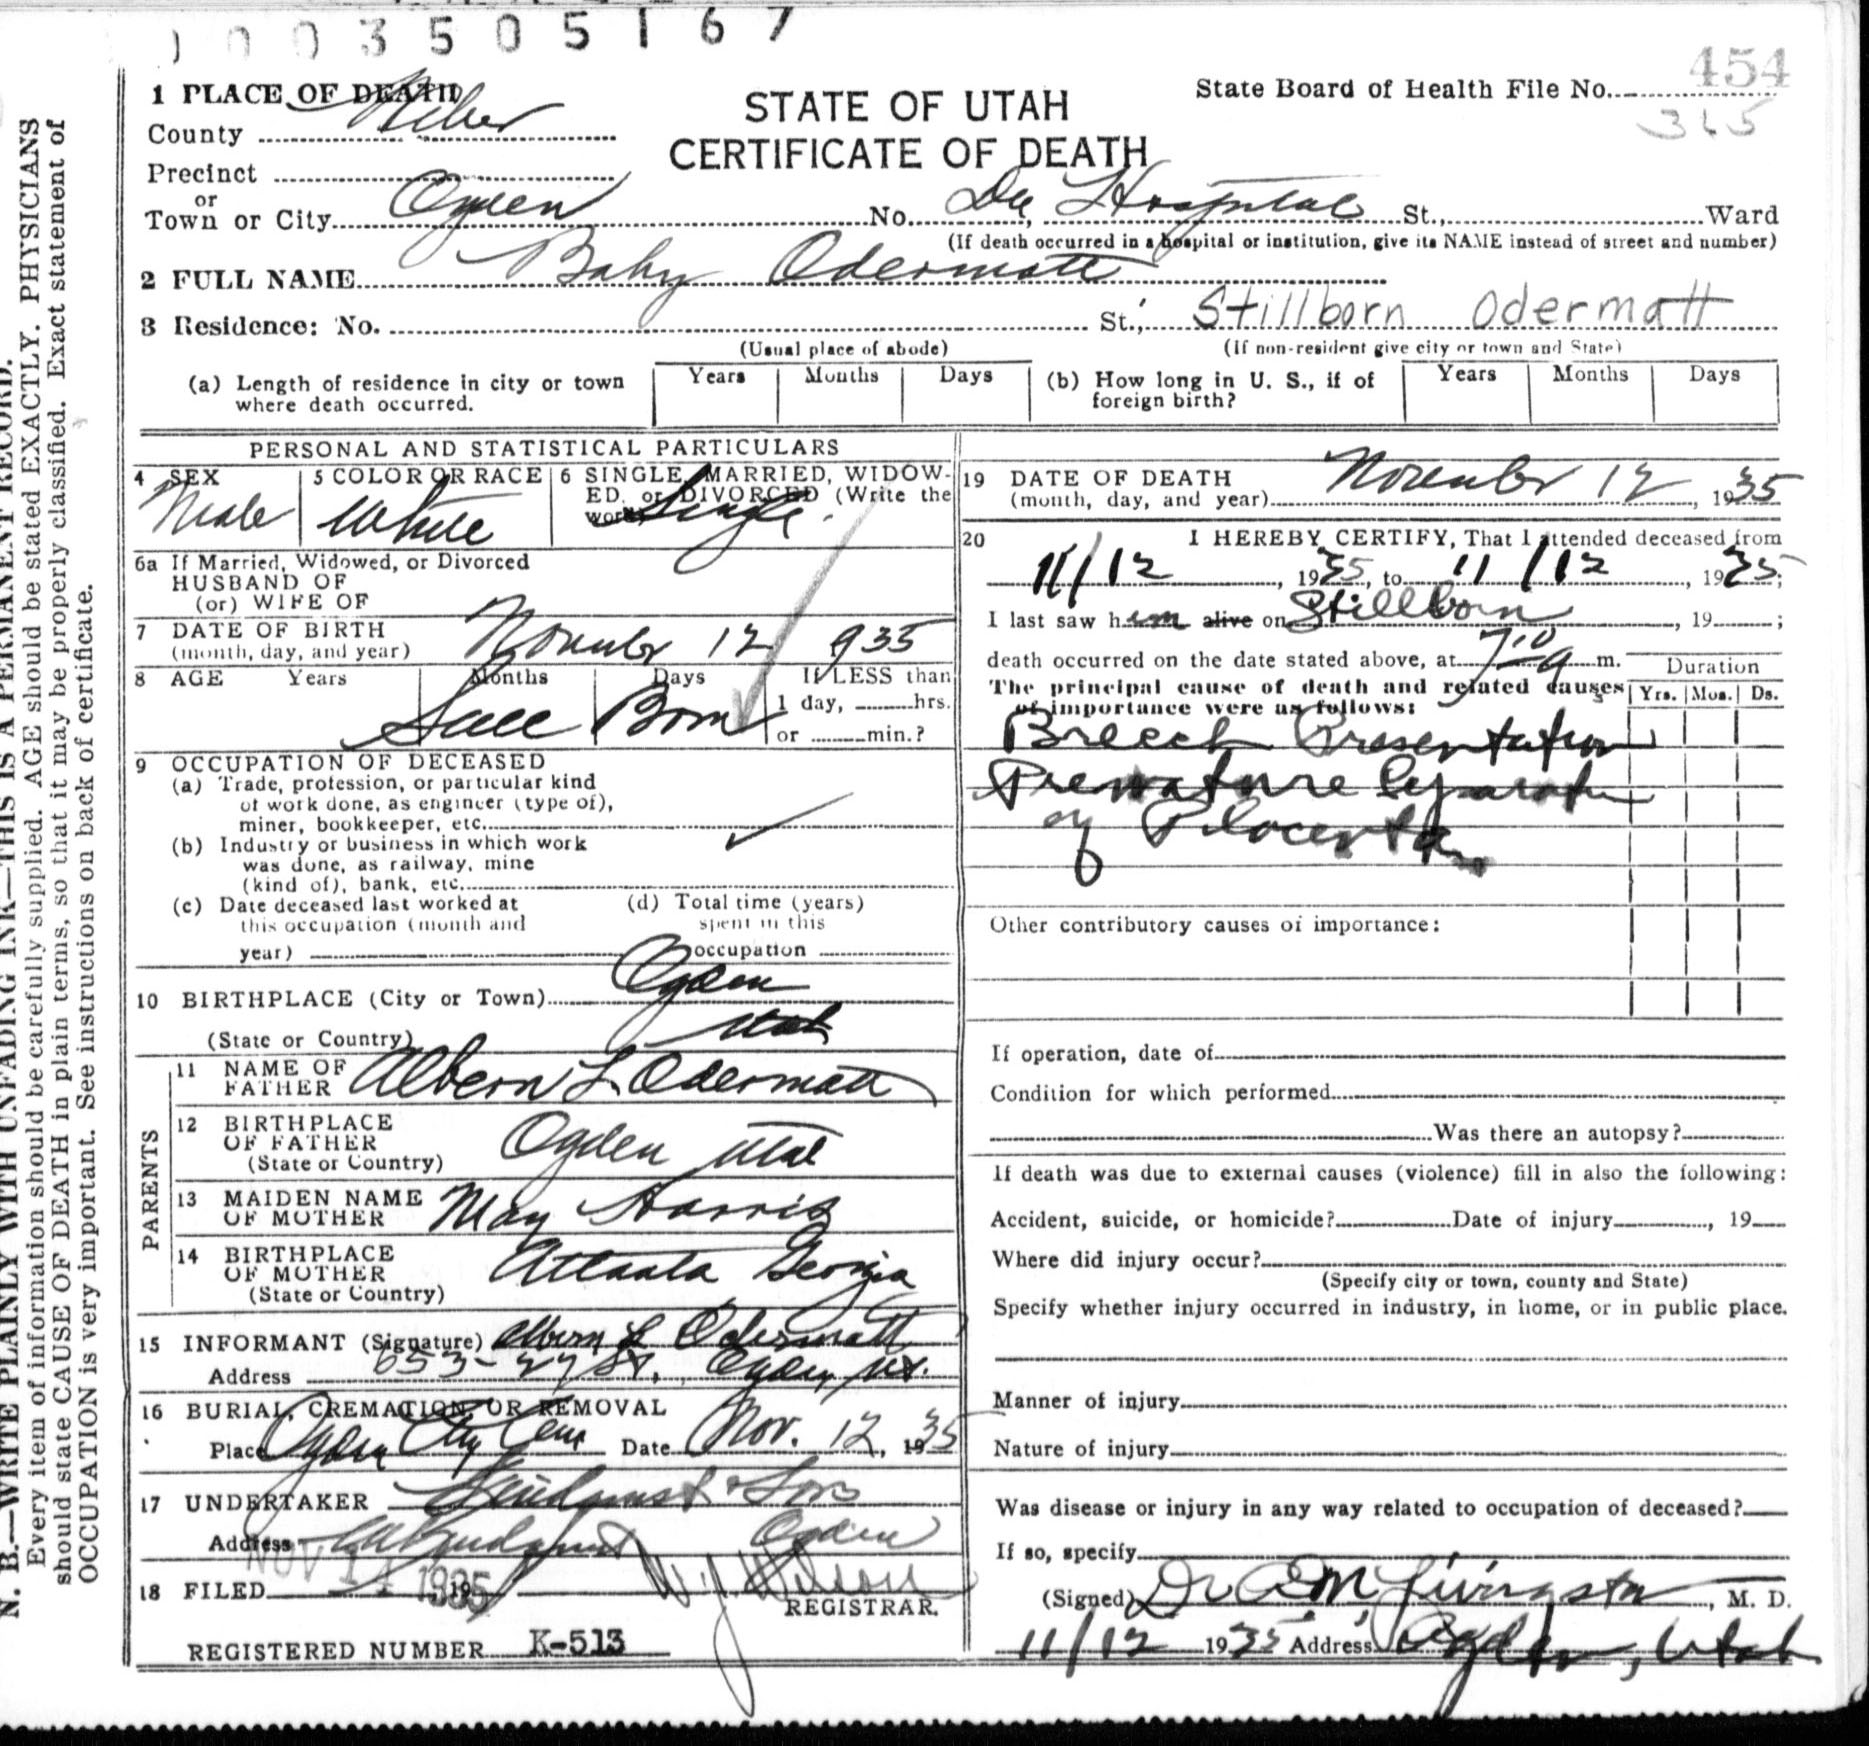 1003505167
454
1 PLACE OF DEATH
State Board of Health File No.
365
County Weber
STATE OF UTAH
CERTIFICATE OF DEATH
Precinct
or
Town or City Ogden No. Dee Hospital St., Ward
(If death occurred in a hospital or institution, give its NAME instead of street and number)
2 FULL NAME Baby Odermatt
3 Residence: No. St., Stillborn Odermatt
(Usual place of abode) (If non-resident give city or town and State)
(a) Length of residence in city or town where death occurred. Years Months Days (b) How long in U. S., if of foreign birth? Years Months Days
PERSONAL AND STATISTICAL PARTICULARS
4 SEX Male
5 COLOR OR RACE White
6 SINGLE, MARRIED, WIDOW-
ED, or DIVORCED (Write the
word) Single
6a If Married, Widowed, or Divorced
HUSBAND OF
(or) WIFE OF
7 DATE OF BIRTH
(month, day, and year) November 12 1935
8 AGE Years Months Days If LESS than
1 day, hrs.
or min.?
Still Born
9 OCCUPATION OF DECEASED
(a) Trade, profession, or particular kind
of work done, as engineer (type of),
miner, bookkeeper, etc.
(b) Industry or business in which work
was done, as railway, mine
(kind of), bank, etc.
(c) Date deceased last worked at
this occupation (month and
year)
(d) Total time (years)
spent in this
occupation
10 BIRTHPLACE (City or Town) Ogden
(State or Country) Utah
PARENTS
11 NAME OF
FATHER Albern L. Odermatt
12 BIRTHPLACE
OF FATHER
(State or Country) Ogden Utah
13 MAIDEN NAME
OF MOTHER May Harris
14 BIRTHPLACE
OF MOTHER
(State or Country) Atlanta Georgia
15 INFORMANT (Signature) Albern L Odermatt
Address 653-27 St., Ogden, Ut.
16 BURIAL, CREMATION OR REMOVAL
Place Ogden City Cem Date Nov. 12, 1935
17 UNDERTAKER Lindquist & Sons
Address Ogden
NOV 14 1935
18 FILED 19 W J Wilson
REGISTRAR.
REGISTERED NUMBER K-513
19 DATE OF DEATH
(month, day, and year) November 12, 1935
20 I HEREBY CERTIFY, That I attended deceased from
11/12, 1935, to 11/12, 1935;
I last saw him alive on Stillborn, 19 ;
death occurred on the date stated above, at 7 10 a m. Duration
The principal cause of death and related causes
of importance were as follows: Yrs. Mos. Ds.
Breech Presentation
Premature Separation
of Placenta
Other contributory causes of importance:
If operation, date of
Condition for which performed
Was there an autopsy?
If death was due to external causes (violence) fill in also the following:
Accident, suicide, or homicide? Date of injury , 19
Where did injury occur?
(Specify city or town, county and State)
Specify whether injury occurred in industry, in home, or in public place.
Manner of injury
Nature of injury
Was disease or injury in any way related to occupation of deceased?
If so, specify
(Signed) Dr Livingston, M. D.
11/12 1935 Address Ogden, Utah
N. B.—WRITE PLAINLY WITH UNFADING INK—THIS IS A PERMANENT RECORD.
Every item of information should be carefully supplied. AGE should be stated EXACTLY. PHYSICIANS
should state CAUSE OF DEATH in plain terms, so that it may be properly classified. Exact statement of
OCCUPATION is very important. See instructions on back of certificate.